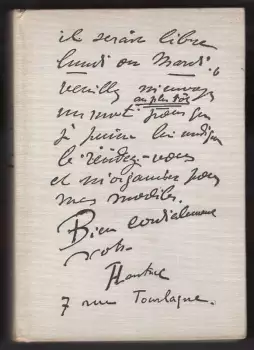 il sera libre
lundi ou Mardi. 6
veuillez m'envoyer
au plus tôt
un mot pour que
je puisse lui indiquer
le rendez-vous
et m'organiser pour
mes modèles.
Bien cordialement
votre
7 rue Tourlaque.